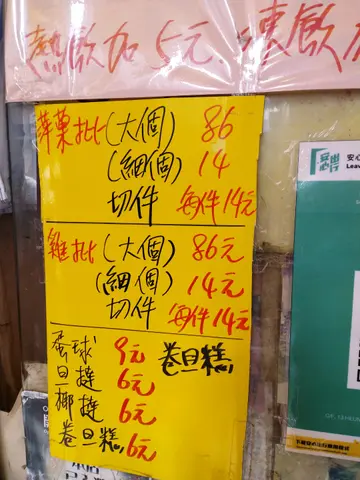 熱飲加5元.凍飲加
苹菓批(大個) 86
(細個) 14
切件 每件14元
雞批(大個) 86元
(細個) 14元
切件 每件14元
蛋球 9元 卷旦糕
旦撻 6元
椰撻 6元
卷旦糕 6元
安心出行
安心
Leav